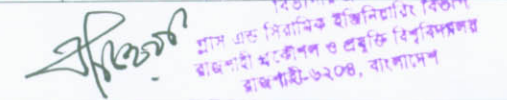 গ্লাস এন্ড সিরামিক ইঞ্জিনিয়ারিং বিভাগ
রাজশাহী প্রকৌশল ও প্রযুক্তি বিশ্ববিদ্যালয়
রাজশাহী-৬২০৪, বাংলাদেশ